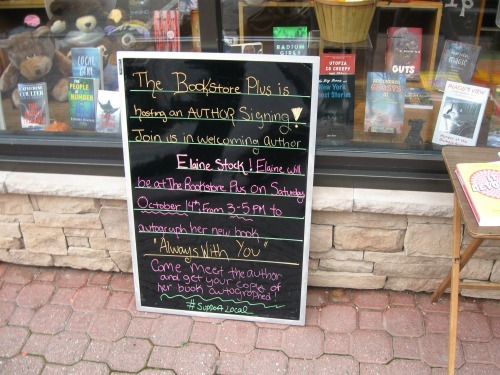 The Bookstore Plus is
hosting an AUTHOR Signing!
Join us in welcoming author
Elaine Stock! Elaine will
be at The Bookstore Plus on Saturday
October 14th From 3-5 PM to
autograph her new book
"Always With You"
Come meet the author
and get your copie of
her book autographed!
#Support Local
RADIUM
GIRLS
UTOPIA
IS CREEPY
New York
Ghost Stories
GUTS
GHOSTS
THE
PEOPLE
NUMBER